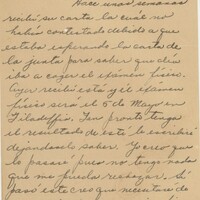 Hace unas semanas
recibí su carta la cual no
habían contestado debido a que
estaba esperando la carta de
la junta para saber que día
iba a coger el examen físico.
Ayer recibí está y el examen
físico será el 5 de Mayo en
Filadelfia. Tan pronto tenga
el resultado de esté le escribiré
dejandoselo saber. Yo creo que
lo pasaré pues no tengo nada
que me pueda rechazar. Si
pasó este creo que necesitaré de